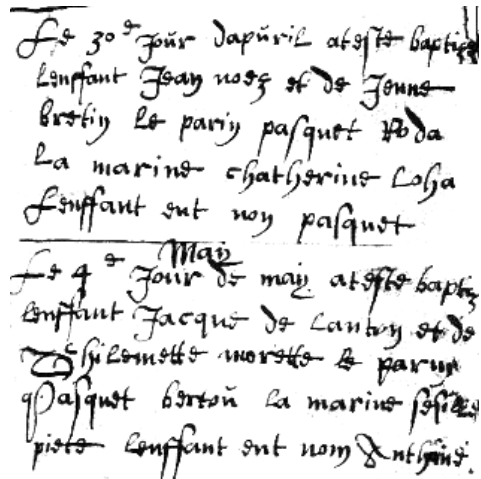 Le 30e Jour dapuril ateste baptize
lenffant Jean noez et de Jenne
bretin le parin pasquet Roda
La marine chatherine Loha
Lenffant eut non pasquet
May
Le 4e Jour de may ateste baptz
lenffant Jacque de lanton et de
Thilemette morette le parin
Pasquet bertou la marine
piete lenffant eut nom Anthoine